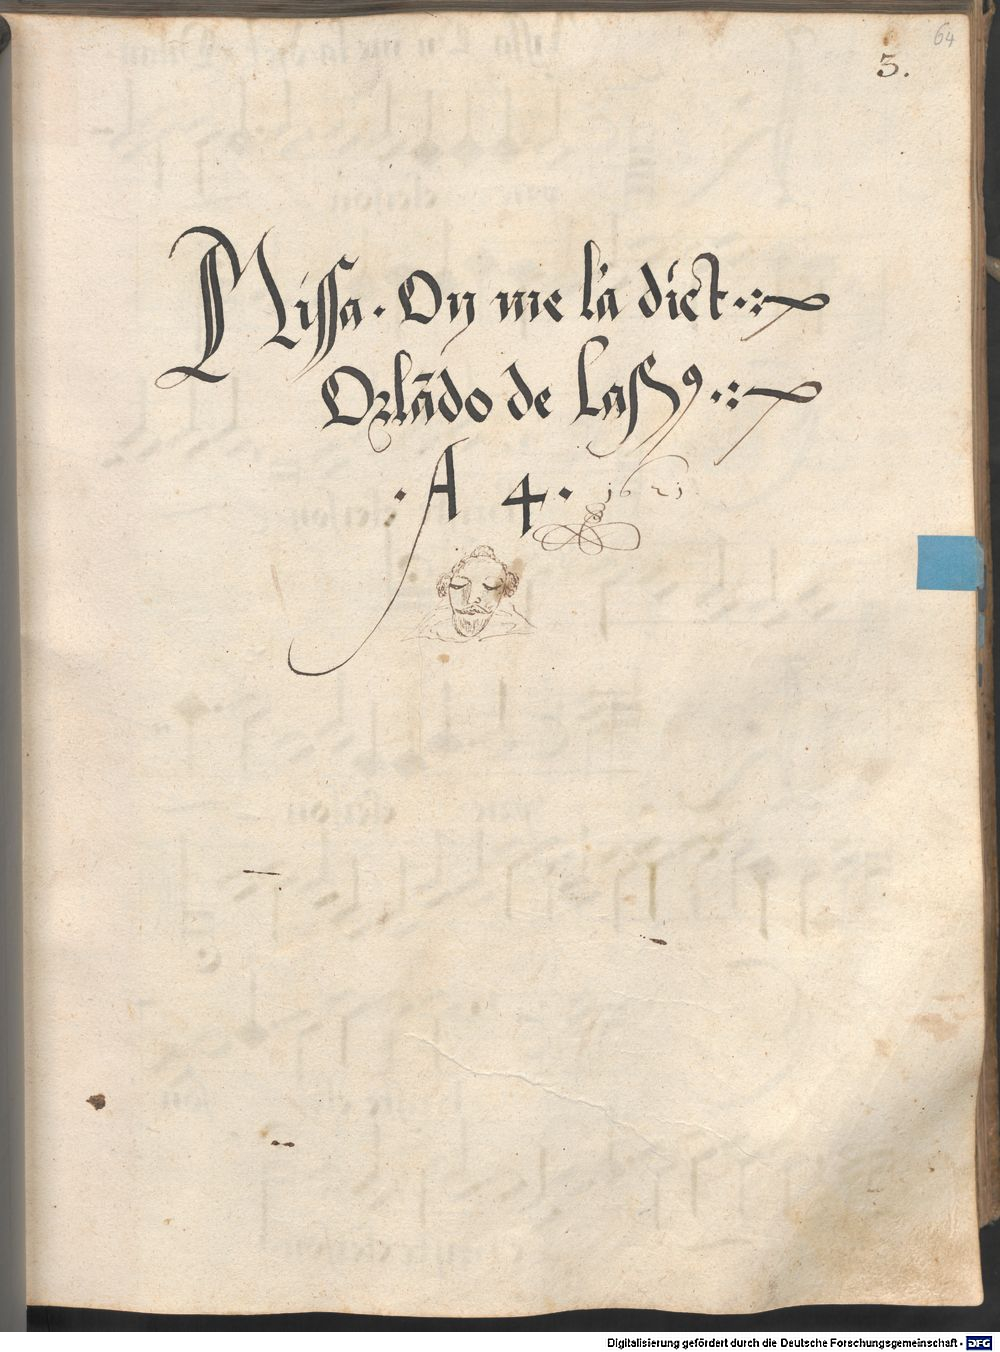 64
3.
Missa. On me la dict
Orlādo de Lassꝰ
. A 4 . 1621
Digitalisierung gefördert durch die Deutsche Forschungsgemeinschaft - DFG